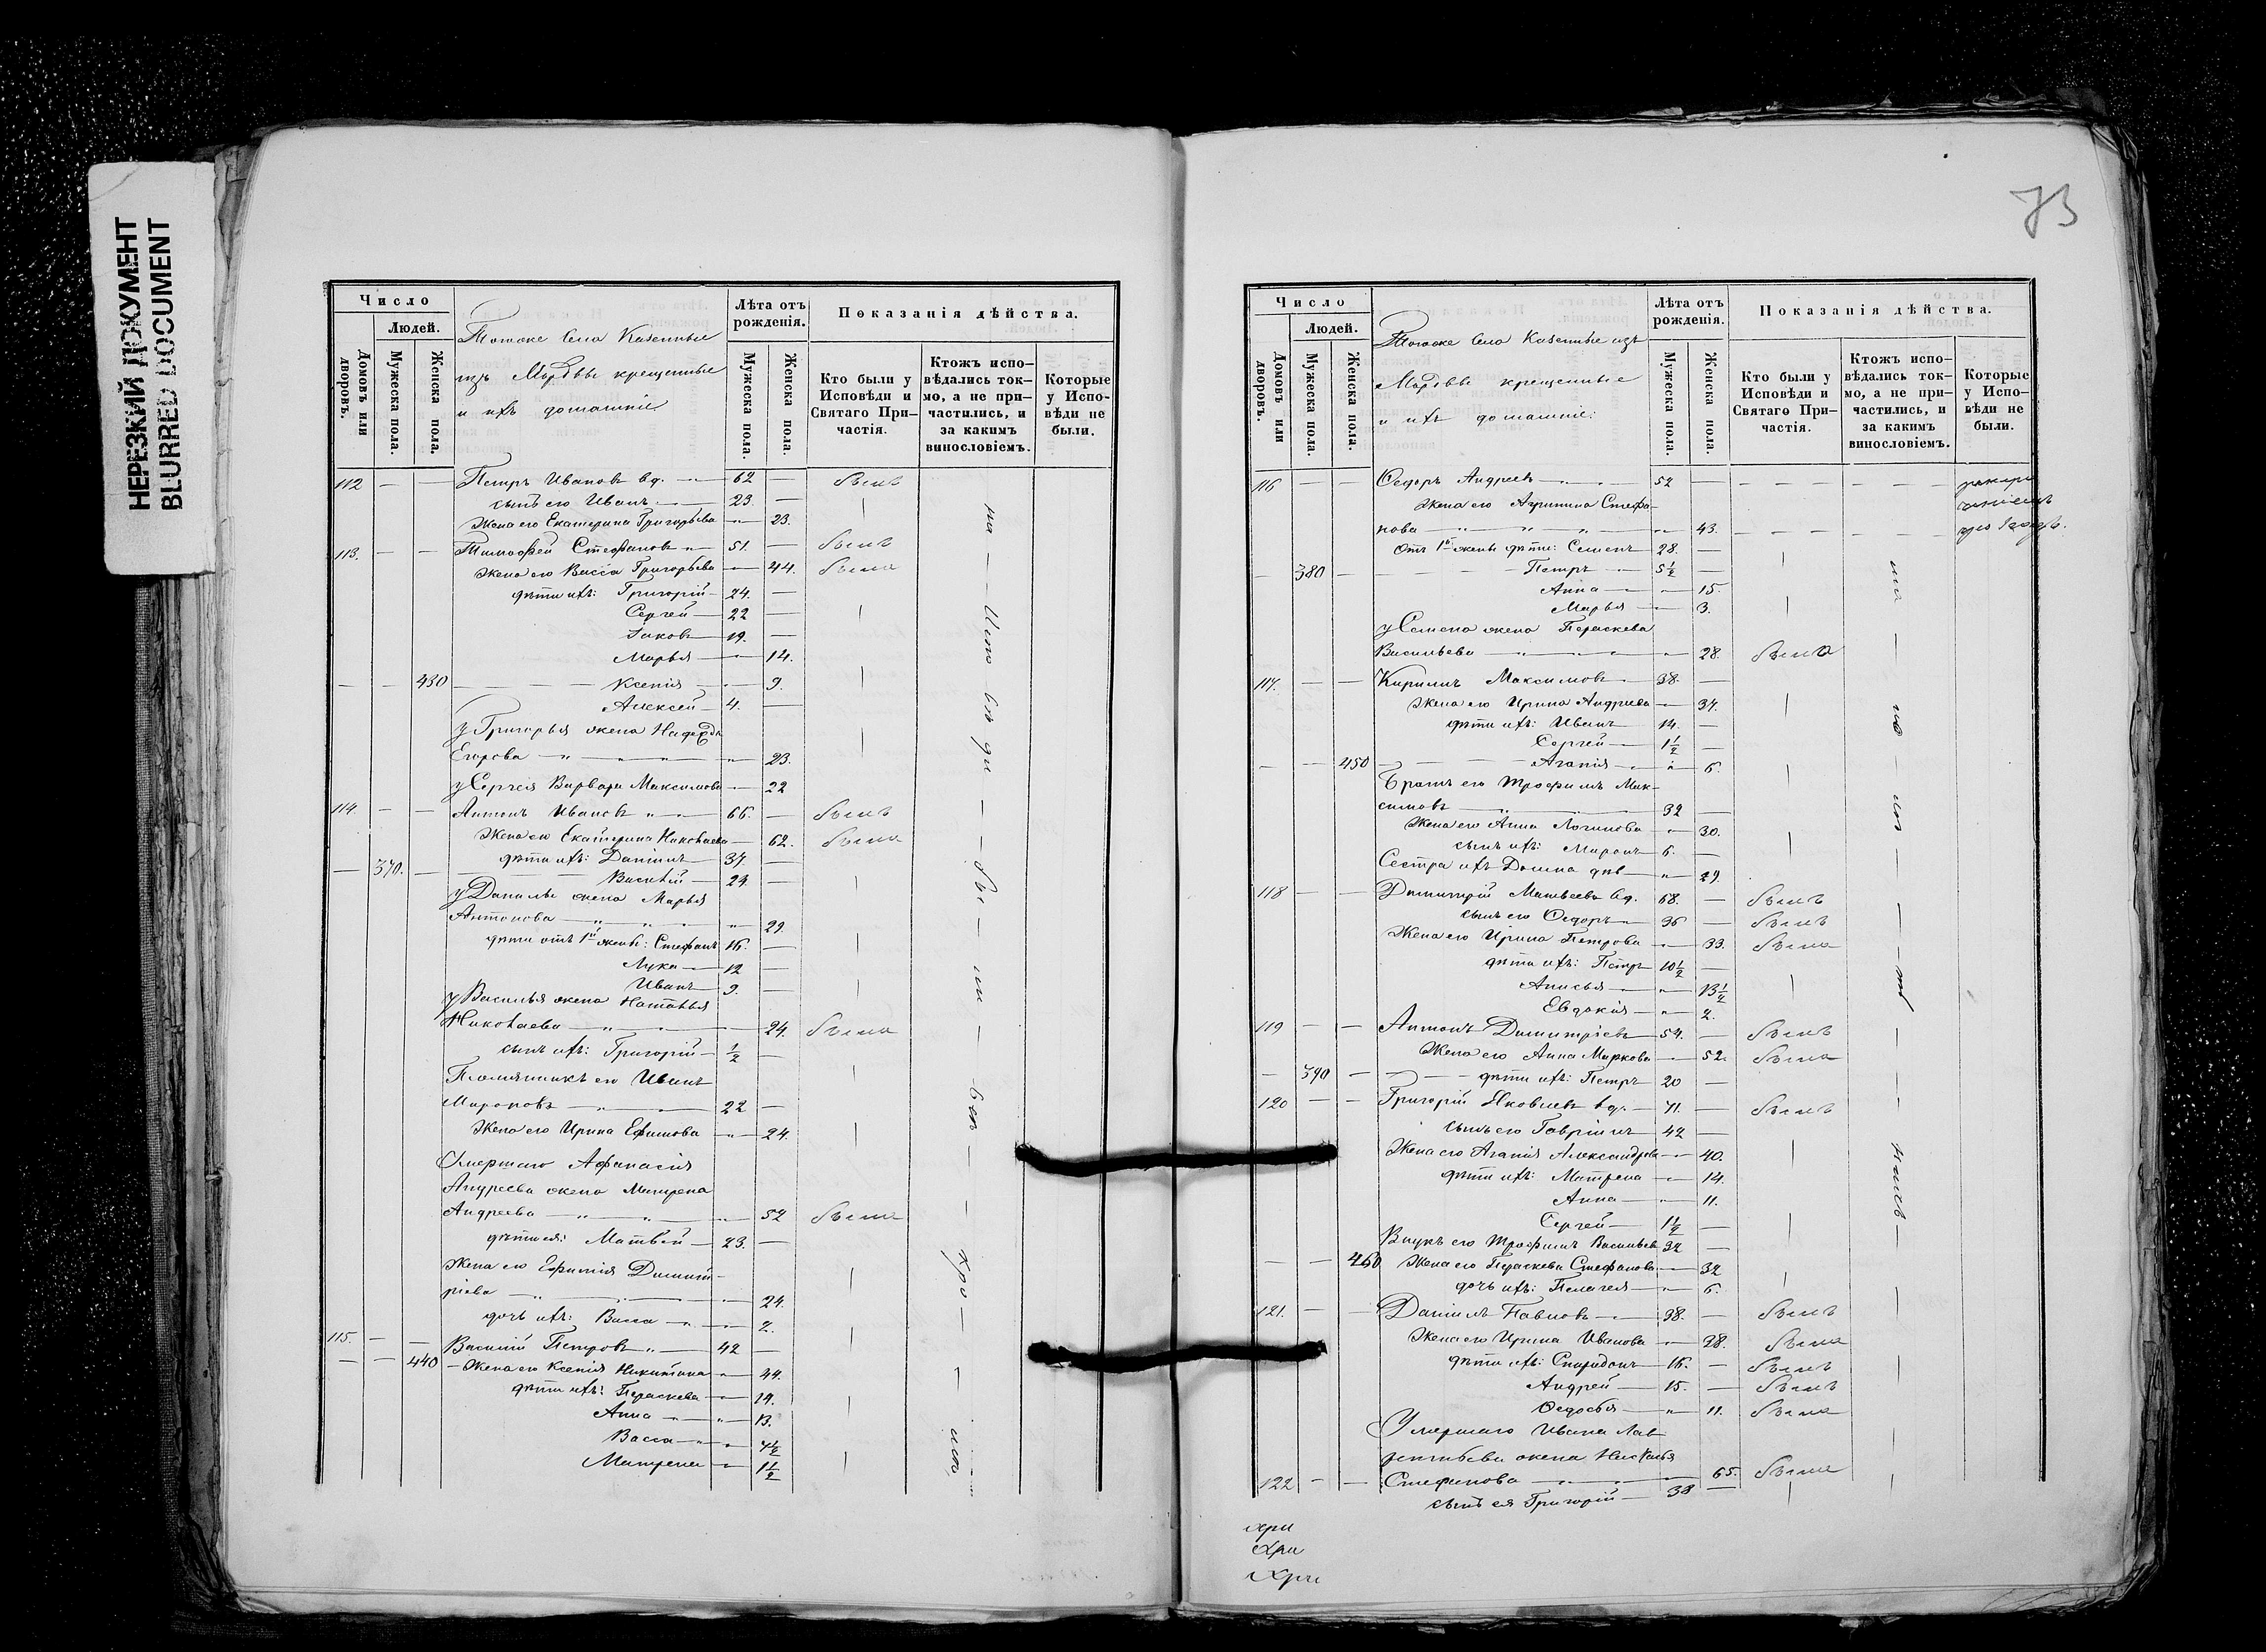 НЕРЕЗКИЙ ДОКУМЕНТ
BLURRED DOCUMENT
Число
Людей.
Домовъ или дворовъ.
Мужеска пола.
Женска пола.
Тогоже Села Казенные
изъ Мордвы крещенные
и ихъ домашніе
Лѣта отъ рожденія.
Мужеска пола.
Женска пола.
Показанія дѣйства.
Кто были у Исповѣди и Святаго Причастія.
Ктожъ исповѣдались токмо, а не причастились, и за какимъ винословіемъ.
Которые у Исповѣди не были.
112 — — Петръ Ивановъ вд. 62 — былъ
сынъ его Иванъ 23 —
Жена его Екатерина Григорьева 23.
113. — — Тимофей Стефановъ 51. — былъ
Жена его Васса Григорьева 44. была
дѣти ихъ: Григорій 24. —
Сергей 22 —
Іаковъ 19. —
Марья 14.
— — 430 Ксенія 9.
Алексей 4. —
у Григорья жена Надежда
Егорова 23.
у Сергея Варвара Максимова 22
114. — — Антонъ Ивановъ 66. — былъ
Жена его Екатерина Николаева 62. была
— 370. — дѣти ихъ: Даніилъ 37. —
Василій 29. —
у Данилы жена Марья
Антонова 29.
дѣти отъ 1й жены: Стефанъ 16. —
Лука 12 —
Иванъ 9. —
у Василья жена Наталья
Николаева 24. была
сынъ ихъ: Григорій ½ —
Племянникъ его Иванъ
Мироновъ 22 —
Жена его Ирина Ефимова 24.
Умершаго Афанасія
Андреева жена Матрена
Андреева 52 была
дѣти ея: Матвей 23. —
Жена его Ефимія Димит-
ріева 24.
дочь ихъ: Васса 2.
115. — — Василій Петровъ 42 —
— — 440 Жена его Ксенія Никитина 44.
дѣти ихъ: Параскева 19.
Анна 13.
Васса 4½
Матрена 1½
73
Число
Людей.
Домовъ или дворовъ.
Мужеска пола.
Женска пола.
Тогоже Села Казенные изъ
Мордвы крещенные
и ихъ домашніе:
Лѣта отъ рожденія.
Мужеска пола.
Женска пола.
Показанія дѣйства.
Кто были у Исповѣди и Святаго Причастія.
Ктожъ исповѣдались токмо, а не причастились, и за какимъ винословіемъ.
Которые у Исповѣди не были.
116 — — Ѳедоръ Андреевъ 52 —
Жена его Агрипина Стефа-
нова 43.
Отъ 1й жены дѣти: Семенъ 28. —
— 380 — Петръ 5½ —
Анна 15.
Марья 3.
у Семена жена Параскева
Васильева 28. была
117. — — Кирилъ Максимовъ 38. —
Жена его Ирина Андреева 37.
дѣти ихъ: Иванъ 14. —
Сергей 1½ —
— — 450 Агапія 6.
Братъ его Трофимъ Мак-
симовъ 32 —
Жена его Анна Логинова 30.
сынъ ихъ: Миронъ 6. —
Сестра ихъ Домна дѣв. 29.
118 — — Димитрій Матвеевъ вд. 68. — былъ
сынъ его Ѳедоръ 36 — былъ
Жена его Ирина Петрова 33. была
дѣти ихъ: Петръ 10½ —
Анисья 13½
Евдокія 2.
119 — — Антонъ Димитріевъ 54. — былъ
Жена его Анна Маркова 52. была
— 390 — дѣти ихъ: Петръ 20 —
120 — — Григорій Яковлевъ вд. 71. — былъ
сынъ его Гавріилъ 42 —
Жена его Агапія Александрова 40.
дѣти ихъ: Матрена 14.
Анна 11.
Сергей 1½ —
Внукъ его Трофимъ Васильевъ 32 —
— — 460 Жена его Параскева Стефанова 32
дочь ихъ: Пелагея 6.
121. — — Даніилъ Павловъ 38. — былъ
Жена его Ирина Иванова 38. была
дѣти ихъ: Спиридонъ 16. — былъ
Андрей 15. — былъ
Ѳедосья 11. была
Умершаго Ивана Лав-
рентьева жена Наталья
122 — — Стефанова 65. была
сынъ ея Григорій 38 —
хри
Хри
Хри